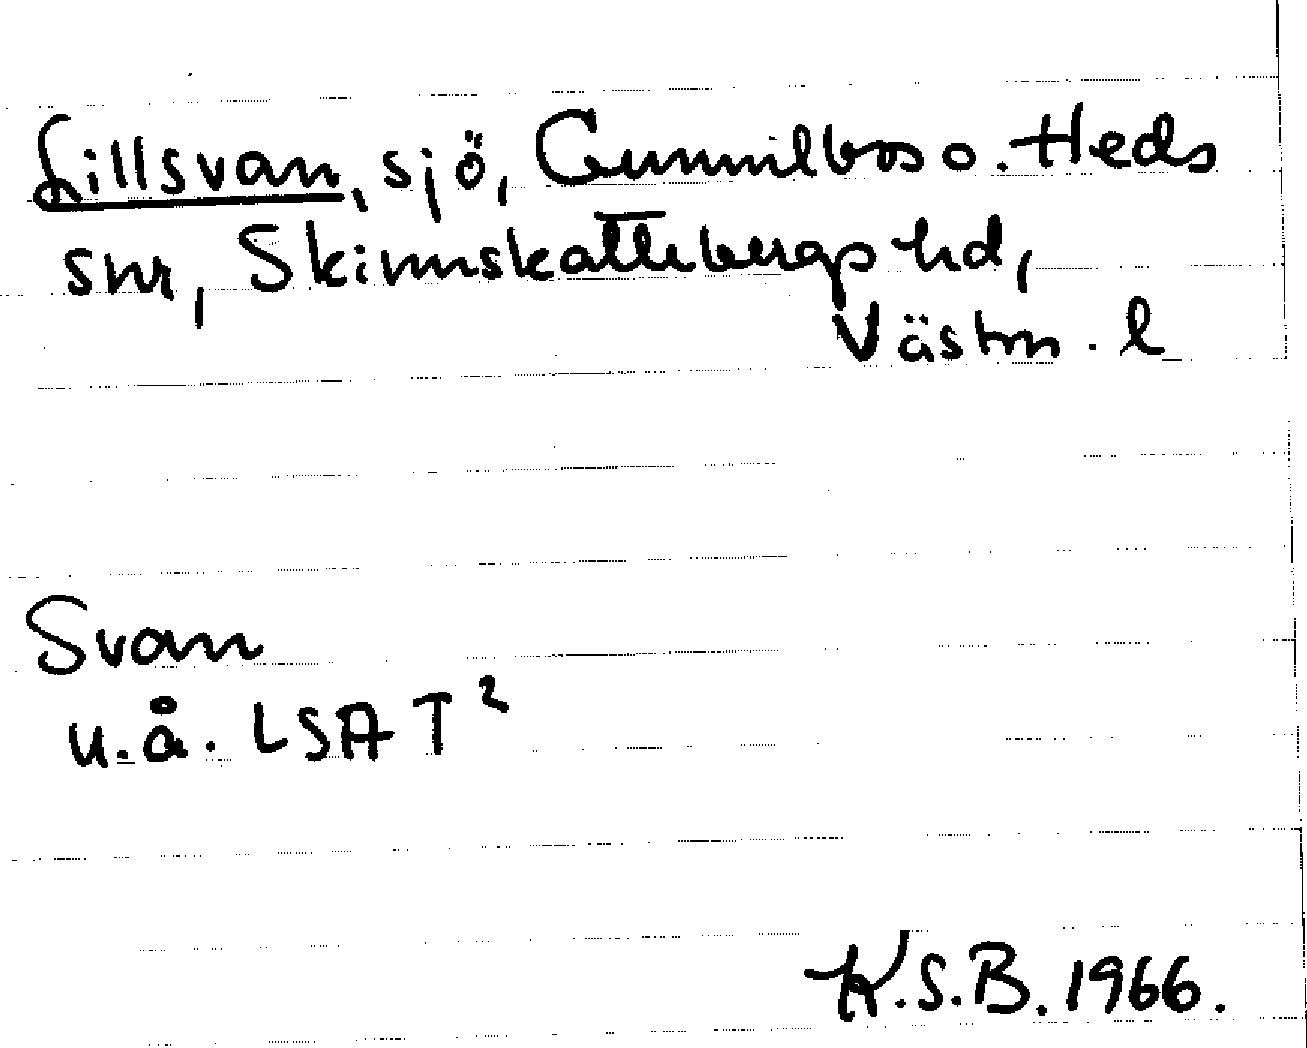 Lillsvan, sjö, Gunnilbos o. Heds
snr, Skinnskattebergs hd,
Västm. l
Svan
u.å. LSA T²
K.S.B. 1966.